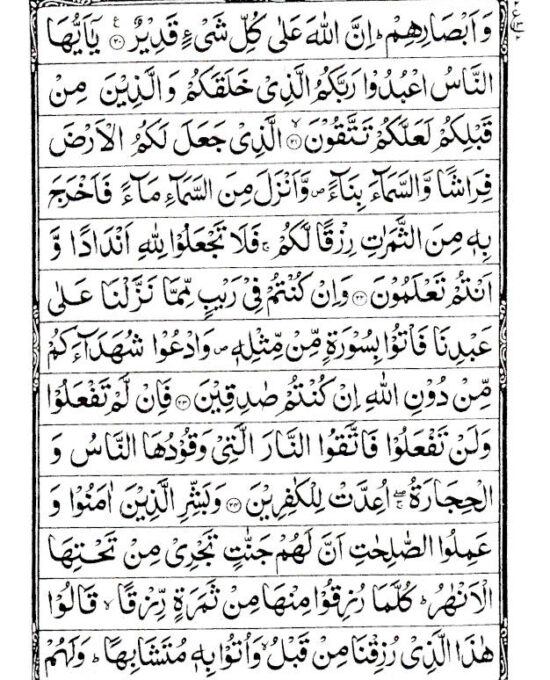 وَاَبْصَارِهِمْ ؕ اِنَّ اللّٰهَ عَلٰى كُلِّ شَیْءٍ قَدِیْرٌ ﴿۲۰﴾ یٰۤاَیُّهَا
النَّاسُ اعْبُدُوْا رَبَّكُمُ الَّذِیْ خَلَقَكُمْ وَالَّذِیْنَ مِنْ
قَبْلِكُمْ لَعَلَّكُمْ تَتَّقُوْنَ ﴿۲۱﴾ الَّذِیْ جَعَلَ لَكُمُ الْاَرْضَ
فِرَاشًا وَّالسَّمَآءَ بِنَآءً ۪ وَّاَنْزَلَ مِنَ السَّمَآءِ مَآءً فَاَخْرَجَ
بِهٖ مِنَ الثَّمَرٰتِ رِزْقًا لَّكُمْ ۚ فَلَا تَجْعَلُوْا لِلّٰهِ اَنْدَادًا وَّ
اَنْتُمْ تَعْلَمُوْنَ ﴿۲۲﴾ وَاِنْ كُنْتُمْ فِیْ رَیْبٍ مِّمَّا نَزَّلْنَا عَلٰى
عَبْدِنَا فَاْتُوْا بِسُوْرَةٍ مِّنْ مِّثْلِهٖ ۪ وَادْعُوْا شُهَدَآءَكُمْ
مِّنْ دُوْنِ اللّٰهِ اِنْ كُنْتُمْ صٰدِقِیْنَ ﴿۲۳﴾ فَاِنْ لَّمْ تَفْعَلُوْا
وَلَنْ تَفْعَلُوْا فَاتَّقُوا النَّارَ الَّتِیْ وَقُوْدُهَا النَّاسُ وَ
الْحِجَارَةُ ۖۚ اُعِدَّتْ لِلْكٰفِرِیْنَ ﴿۲۴﴾ وَبَشِّرِ الَّذِیْنَ اٰمَنُوْا وَ
عَمِلُوا الصّٰلِحٰتِ اَنَّ لَهُمْ جَنّٰتٍ تَجْرِیْ مِنْ تَحْتِهَا
الْاَنْهٰرُ ؕ كُلَّمَا رُزِقُوْا مِنْهَا مِنْ ثَمَرَةٍ رِّزْقًا ۙ قَالُوْا
هٰذَا الَّذِیْ رُزِقْنَا مِنْ قَبْلُ ۙ وَاُتُوْا بِهٖ مُتَشَابِهًا ؕ وَلَهُمْ